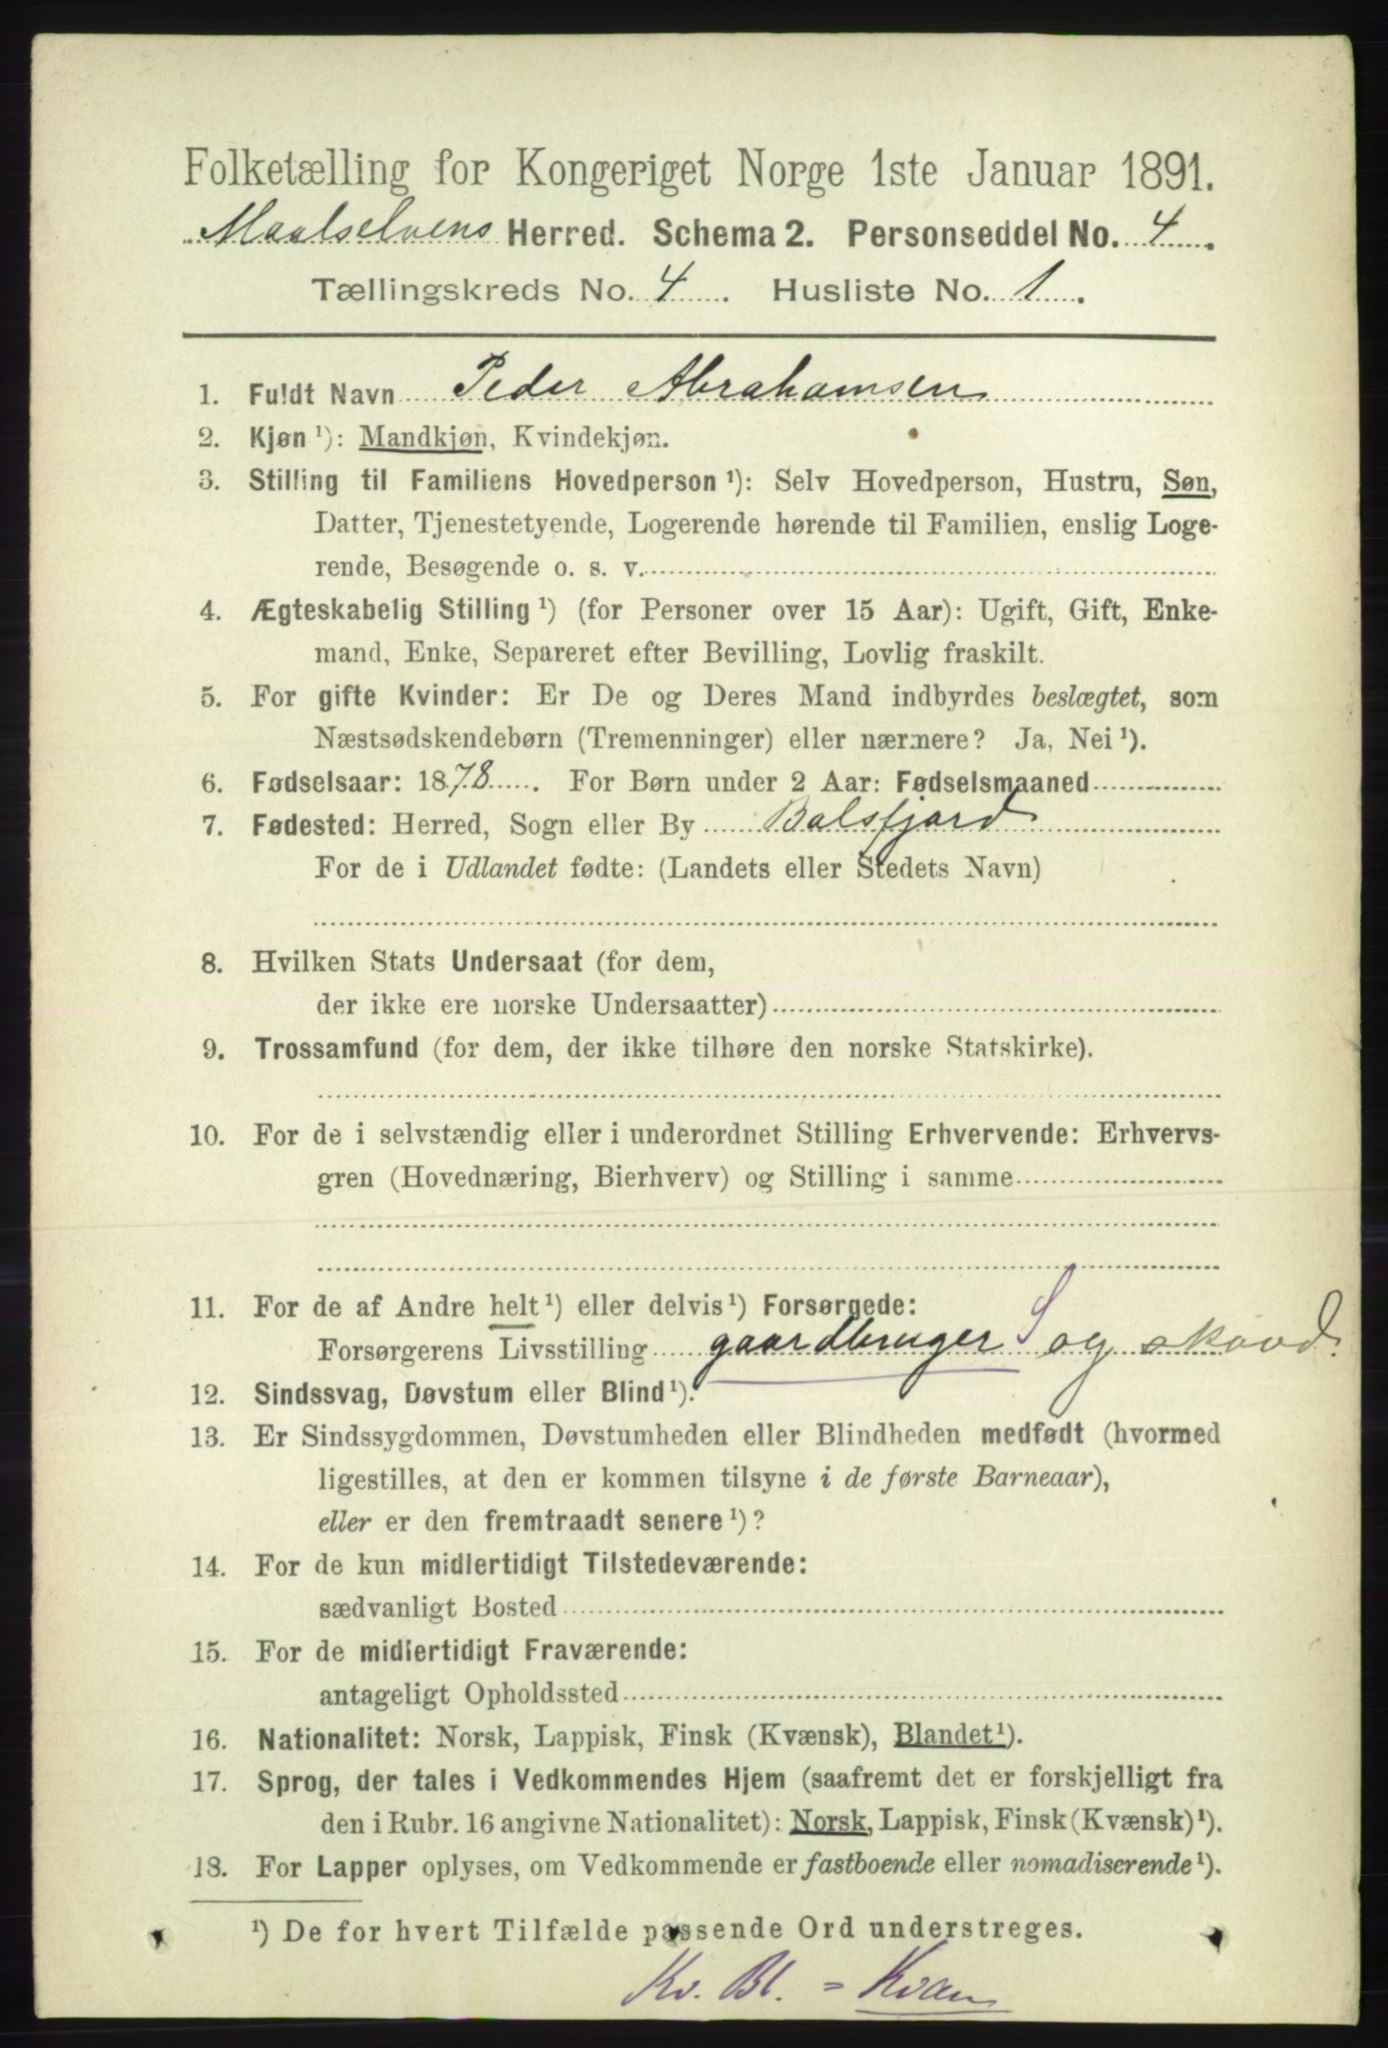 Folketælling for Kongeriget Norge 1ste Januar 1891.
Maalselvens Herred. Schema 2. Personseddel No. 4
Tællingskreds No. 4. Husliste No. 1.
1. Fuldt Navn Peder Abrahamsen
2. Kjøn ¹): Mandkjøn, Kvindekjøn.
3. Stilling til Familiens Hovedperson ¹): Selv Hovedperson, Hustru, Søn,
Datter, Tjenestetyende, Logerende hørende til Familien, enslig Loge-
rende, Besøgende o. s. v.
4. Ægteskabelig Stilling ¹) (for Personer over 15 Aar): Ugift, Gift, Enke-
mand, Enke, Separeret efter Bevilling, Lovlig fraskilt.
5. For gifte Kvinder: Er De og Deres Mand indbyrdes beslægtet, som
Næstsødskendebørn (Tremenninger) eller nærmere? Ja, Nei ¹).
6. Fødselsaar: 1878. For Børn under 2 Aar: Fødselsmaaned
7. Fødested: Herred, Sogn eller By Balsfjord
For de i Udlandet fødte: (Landets eller Stedets Navn)
8. Hvilken Stats Undersaat (for dem,
der ikke ere norske Undersaatter)
9. Trossamfund (for dem, der ikke tilhøre den norske Statskirke).
10. For de i selvstændig eller i underordnet Stilling Erhvervende: Erhvervs-
gren (Hovednæring, Bierhverv) og Stilling i samme
11. For de af Andre helt ¹) eller delvis ¹) Forsørgede:
Forsørgerens Livsstilling gaardbruger S og skovd.
12. Sindssvag, Døvstum eller Blind ¹).
13. Er Sindssygdommen, Døvstumheden eller Blindheden medfødt (hvormed
ligestilles, at den er kommen tilsyne i de første Barneaar),
eller er den fremtraadt senere ¹)?
14. For de kun midlertidigt Tilstedeværende:
sædvanligt Bosted
15. For de midlertidigt Fraværende:
antageligt Opholdssted
16. Nationalitet: Norsk, Lappisk, Finsk (Kvænsk), Blandet ¹).
17. Sprog, der tales i Vedkommendes Hjem (saafremt det er forskjelligt fra
den i Rubr. 16 angivne Nationalitet): Norsk, Lappisk, Finsk (Kvænsk) ¹).
18. For Lapper oplyses, om Vedkommende er fastboende eller nomadiserende ¹).
¹) De for hvert Tilfælde passende Ord understreges.
Kv. Bl. = Kvæn